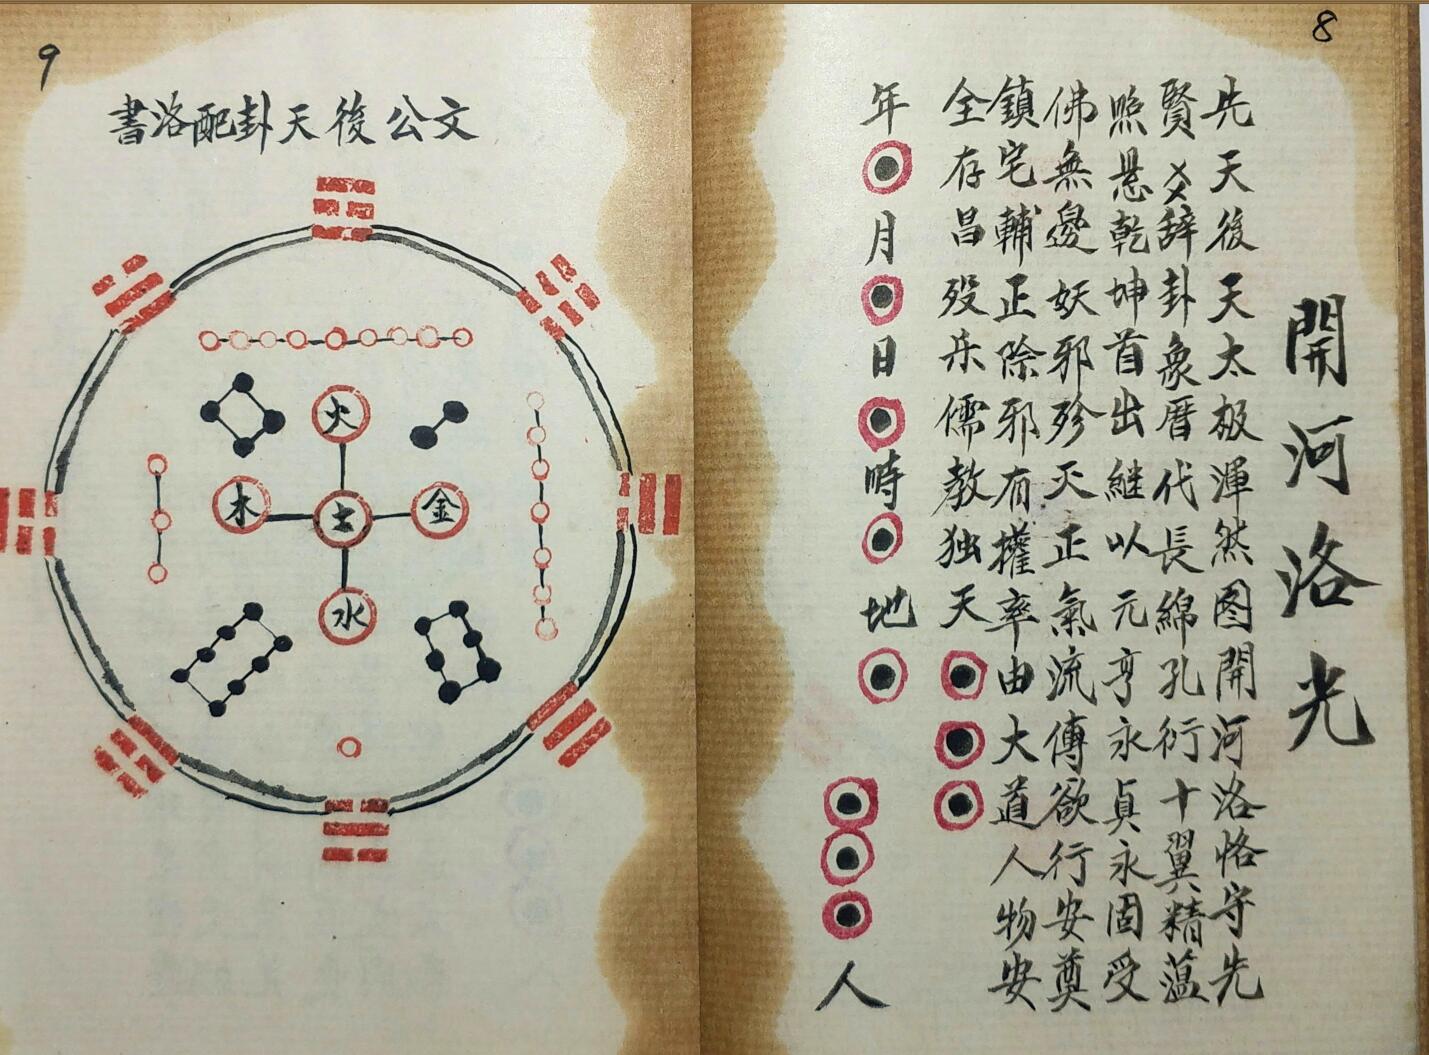 8
開河洛光
先天後天太极渾然图開河洛恪守先
賢爻辞卦象曆代長綿孔衍十翼精蕴
照悬乾坤首出継以元亨永貞永固受
佛無邊妖邪殄灭正氣流傳欲行安奠
鎮宅輔正除邪有權率由大道人物安
全存昌殁乐儒教独天
年月日時地
人
9
文公後天卦配洛書
火
木土金
水